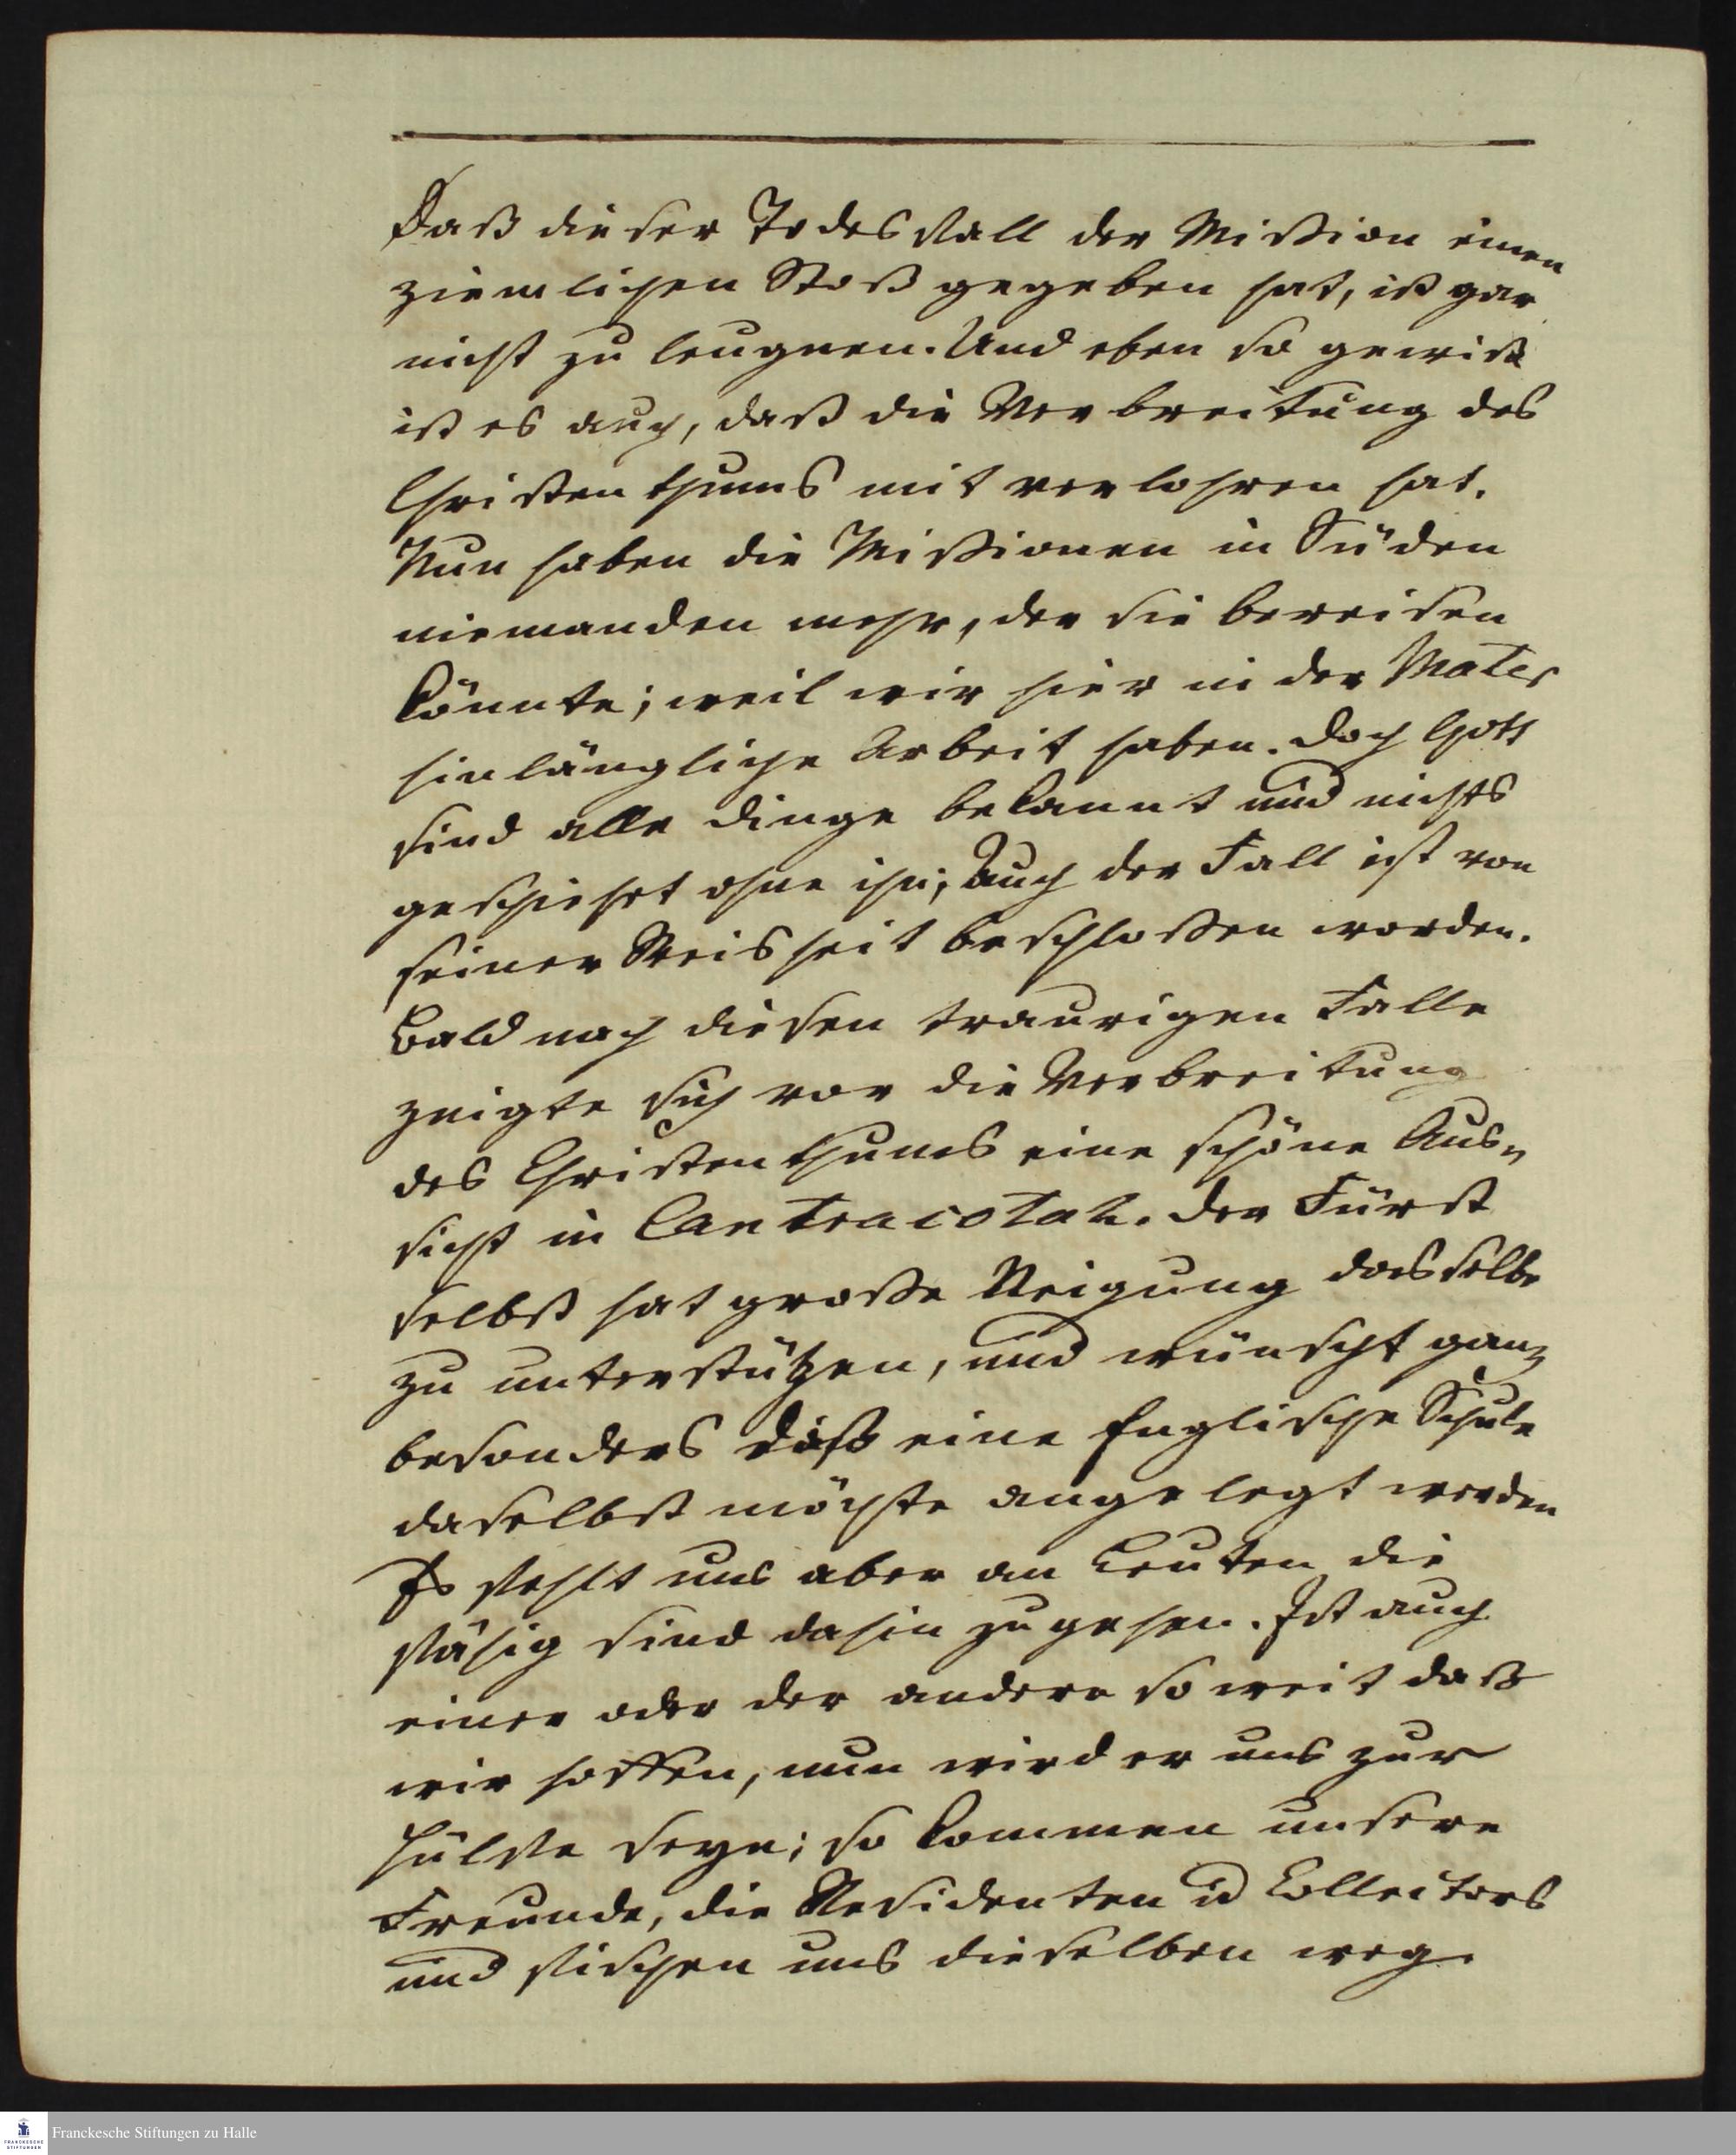 Daß dieser Todesfall der Mißion einen
ziemlichen Stoß gegeben hat, ist gar
nicht zu leugnen. Und eben so gewiß
ist es auch, daß die Verbreitung des
Christenthums mit verlohren hat.
Nun haben die Mißionen in Süden
niemanden mehr, der sie bereisen
könnte; weil wir hier in der Mater
hinlängliche Arbeit haben. Doch Gott
sind alle Dinge bekannt und nichts
geschiehet ohne ihn; Auch der Fall ist von
seiner Weisheit beschloßen worden.
Bald nach diesen traurigen Falle
zeigte sich vor die Verbreitung
des Christenthums eine schöne Aus-
sicht in Cantracotah. Der Fürst
selbst hat große Neigung dasselbe
zu unterstützen, und wünscht ganz
besonders daß eine Englische Schule
daselbst möchte angelegt werden
Es fehlt uns aber an Leuten die
fähig sind dahin zu gehen. Ist auch
einer oder der andere so weit daß
wir hoffen, nun wird er uns zur
Hülfe seyn; so kommen unsere
Freunde, die Residenten u Collectors
und fischen uns dieselben weg.
Franckesche Stiftungen zu Halle
FRANCKESCHE
STIFTUNGEN